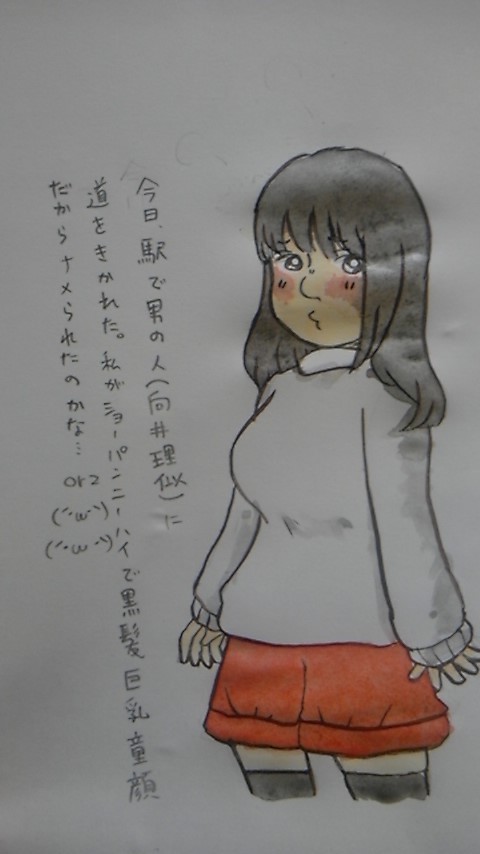 今日、駅で男の人(向井理似)に
道をきかれた。私がショーパンニーハイで黒髪巨乳童顔
だからナメられたのかな…
orz
(´･ω･`)
(´･ω･`)